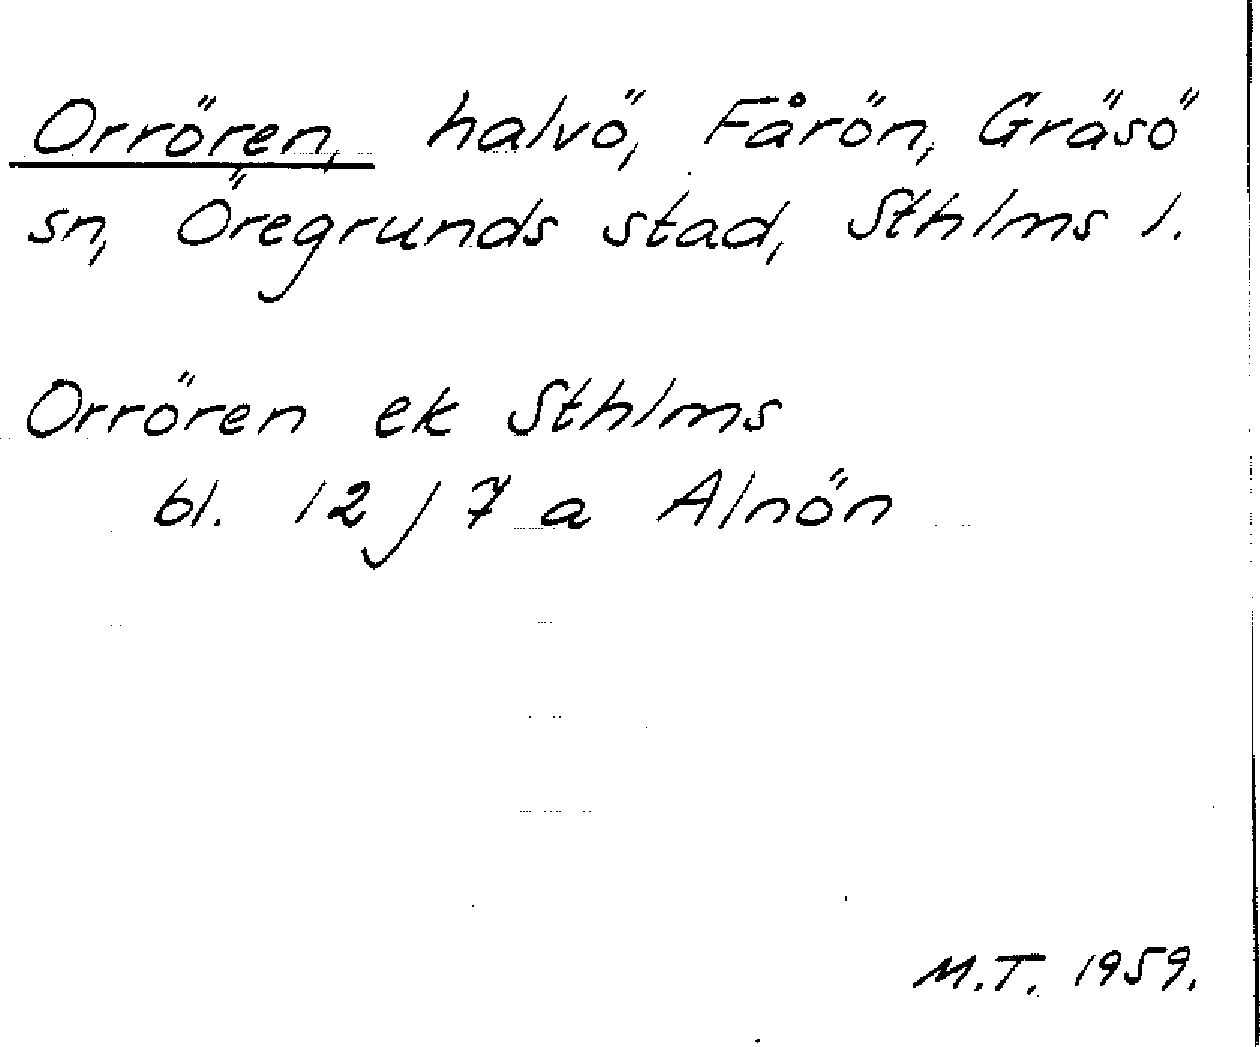 Orrören, halvö, Fårön, Gräsö
sn, Öregrunds stad, Sthlms l.
Orrören ek Sthlms
bl. 12 J 7 a Alnön
M.T. 1959.